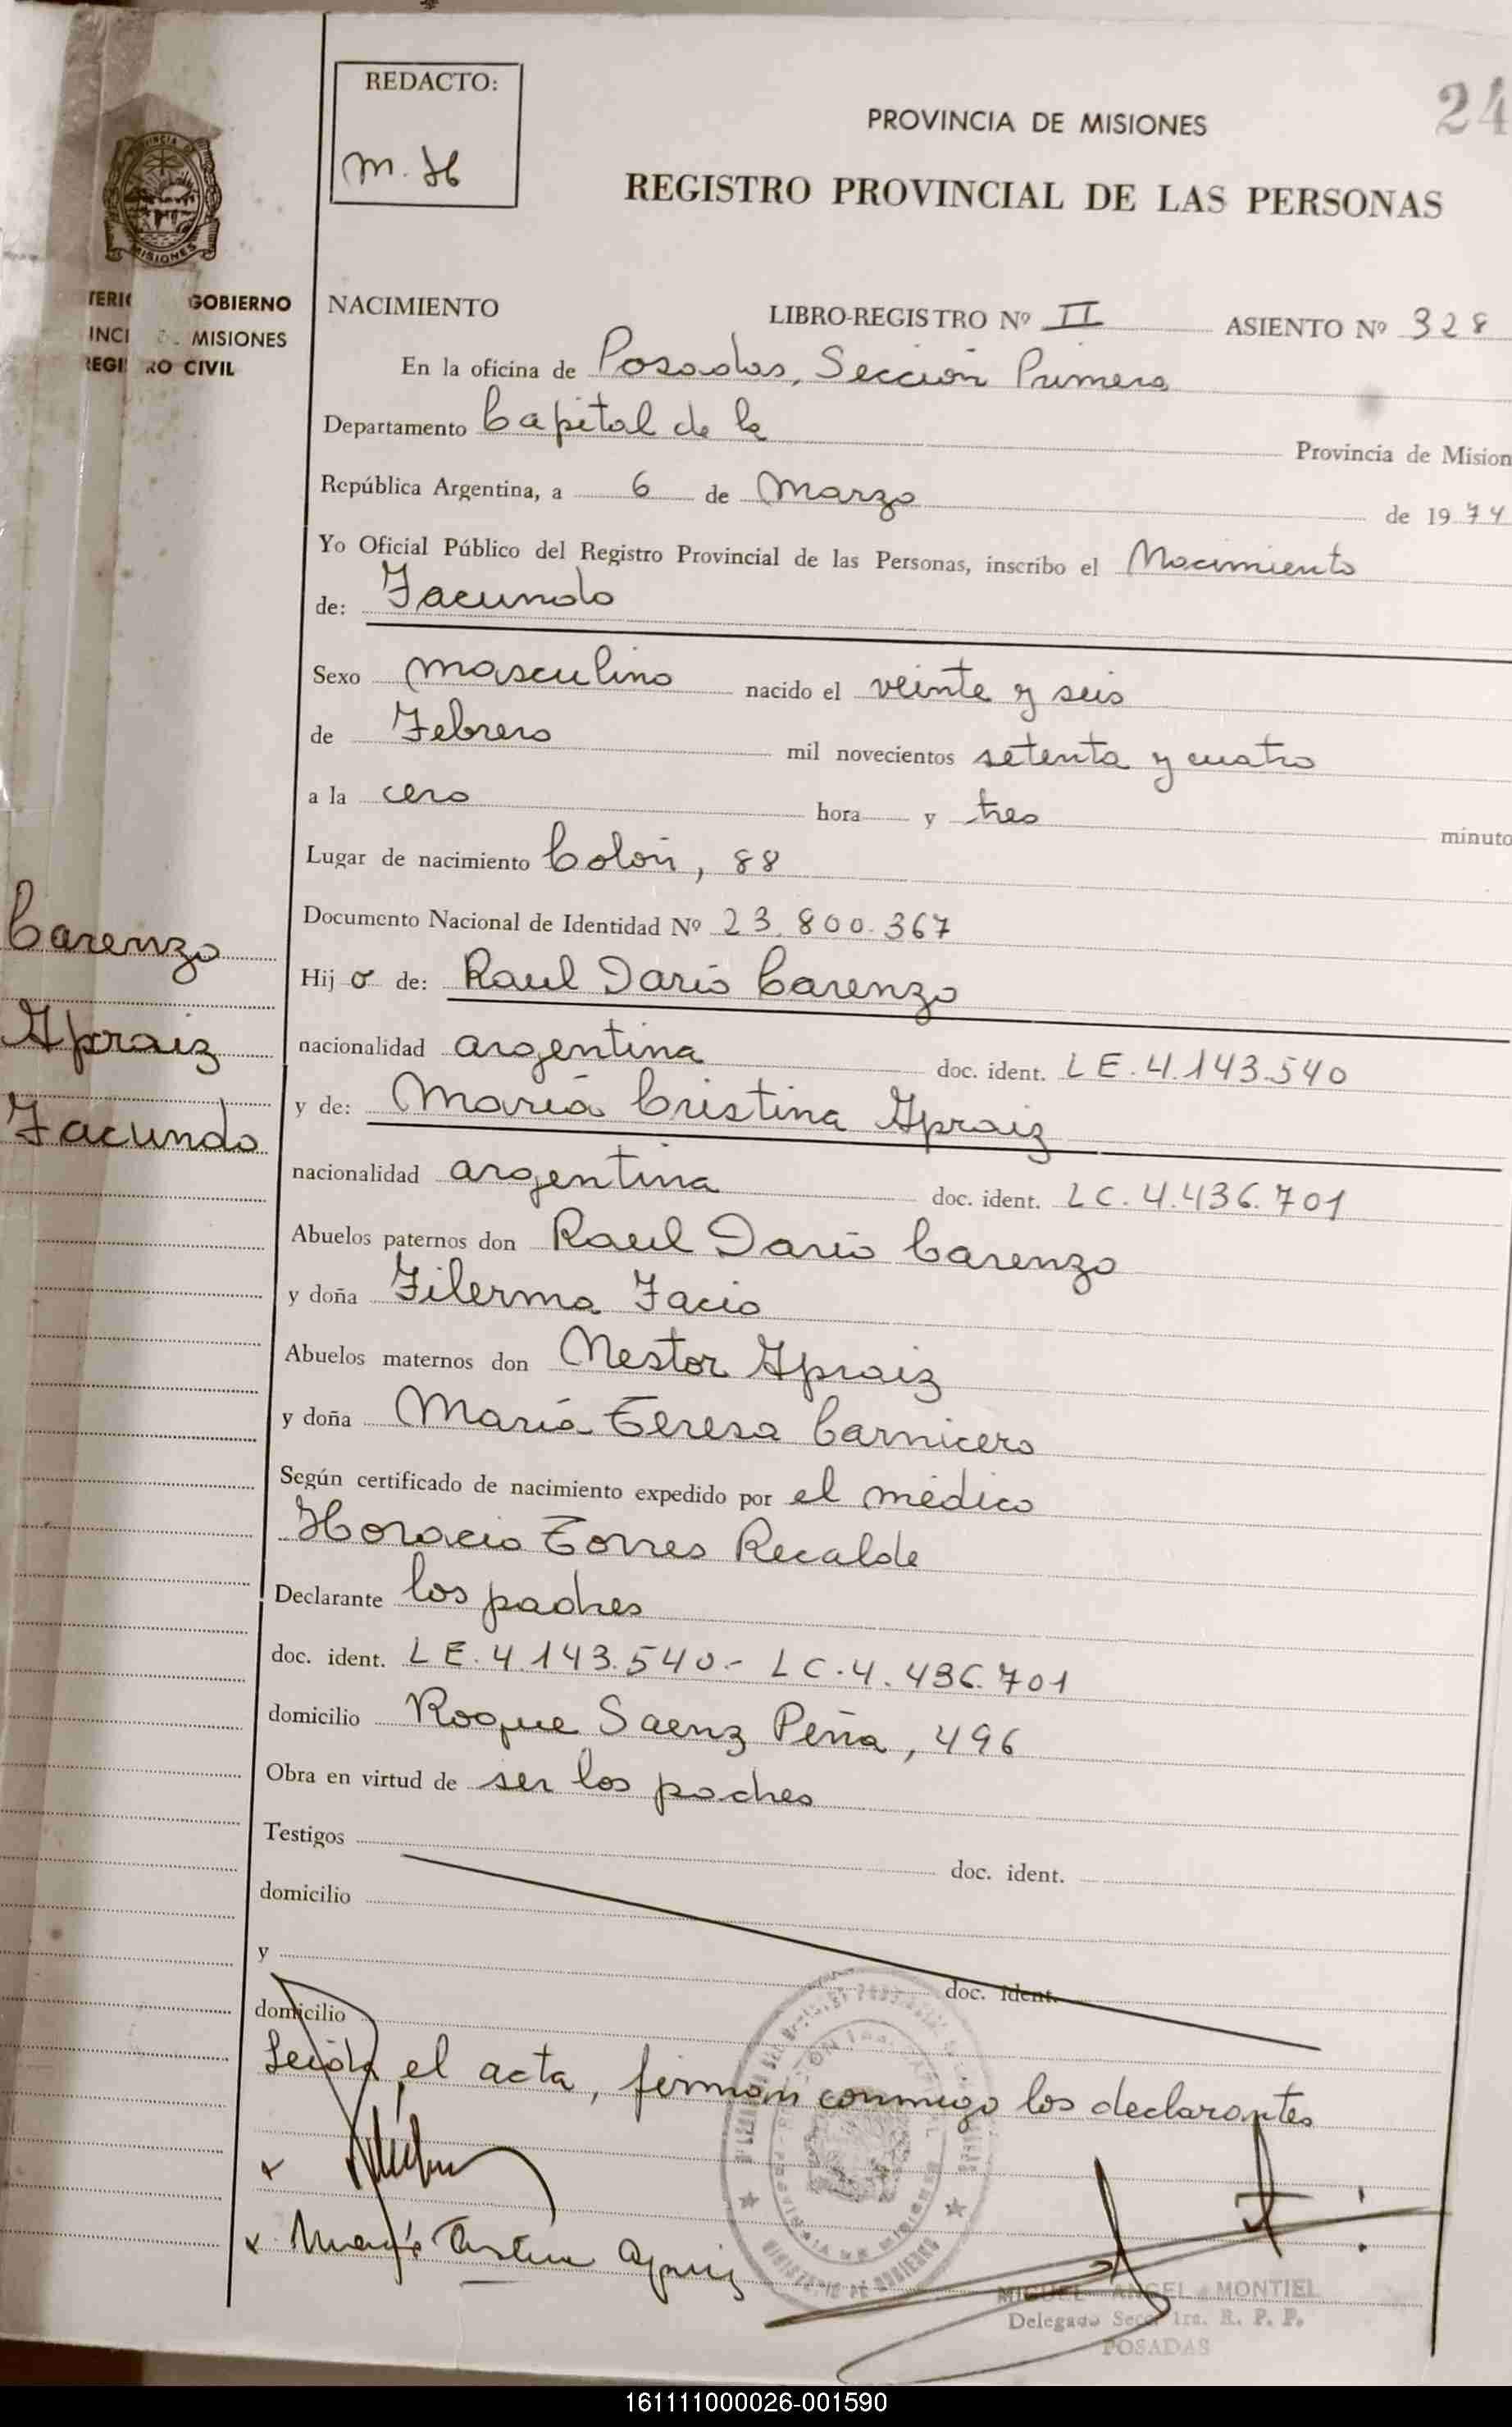 REDACTO:
M. H
PROVINCIA DE MISIONES
24
REGISTRO PROVINCIAL DE LAS PERSONAS
MISIONES
GOBIERNO
MISIONES
CIVIL
NACIMIENTO LIBRO-REGISTRO Nº II ASIENTO Nº 328
En la oficina de Posadas, Sección Primera
Departamento Capital de la Provincia de Mision
República Argentina, a 6 de Marzo de 1974
Yo Oficial Público del Registro Provincial de las Personas, inscribo el Nacimiento
de: Facundo
Sexo masculino nacido el veinte y seis
de Febrero mil novecientos setenta y cuatro
a la cero hora y tres minuto
Lugar de nacimiento Colón, 88
Documento Nacional de Identidad Nº 23.800.367
Hijo de: Raul Dario Carenzo
nacionalidad argentina doc. ident. LE.4.143.540
y de: María Cristina Apraiz
nacionalidad argentina doc. ident. LC.4.436.701
Abuelos paternos don Raul Dario Carenzo
y doña Filerma Facio
Abuelos maternos don Nestor Apraiz
y doña María Teresa Carnicero
Según certificado de nacimiento expedido por el médico
Horacio Torres Recalde
Declarante los padres
doc. ident. LE.4.143.540.- LC.4.436.701
domicilio Roque Saenz Peña, 496
Obra en virtud de ser los padres
Testigos doc. ident.
domicilio
y doc. ident.
domicilio
Leida el acta, firman conmigo los declarantes
Carenzo
Apraiz
Facundo
x
x María Cristina Apraiz
MINISTERIO DE GOBIERNO
MIGUEL ANGEL MONTIEL
Delegado Secc. 1ra. R. P. P.
POSADAS
161111000026-001590